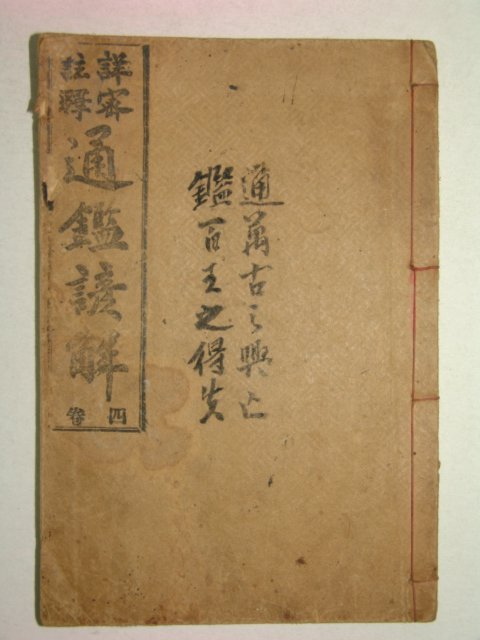 詳密
註釋
通鑑諺解
四卷
通萬古之興亡
鑑百王之得失